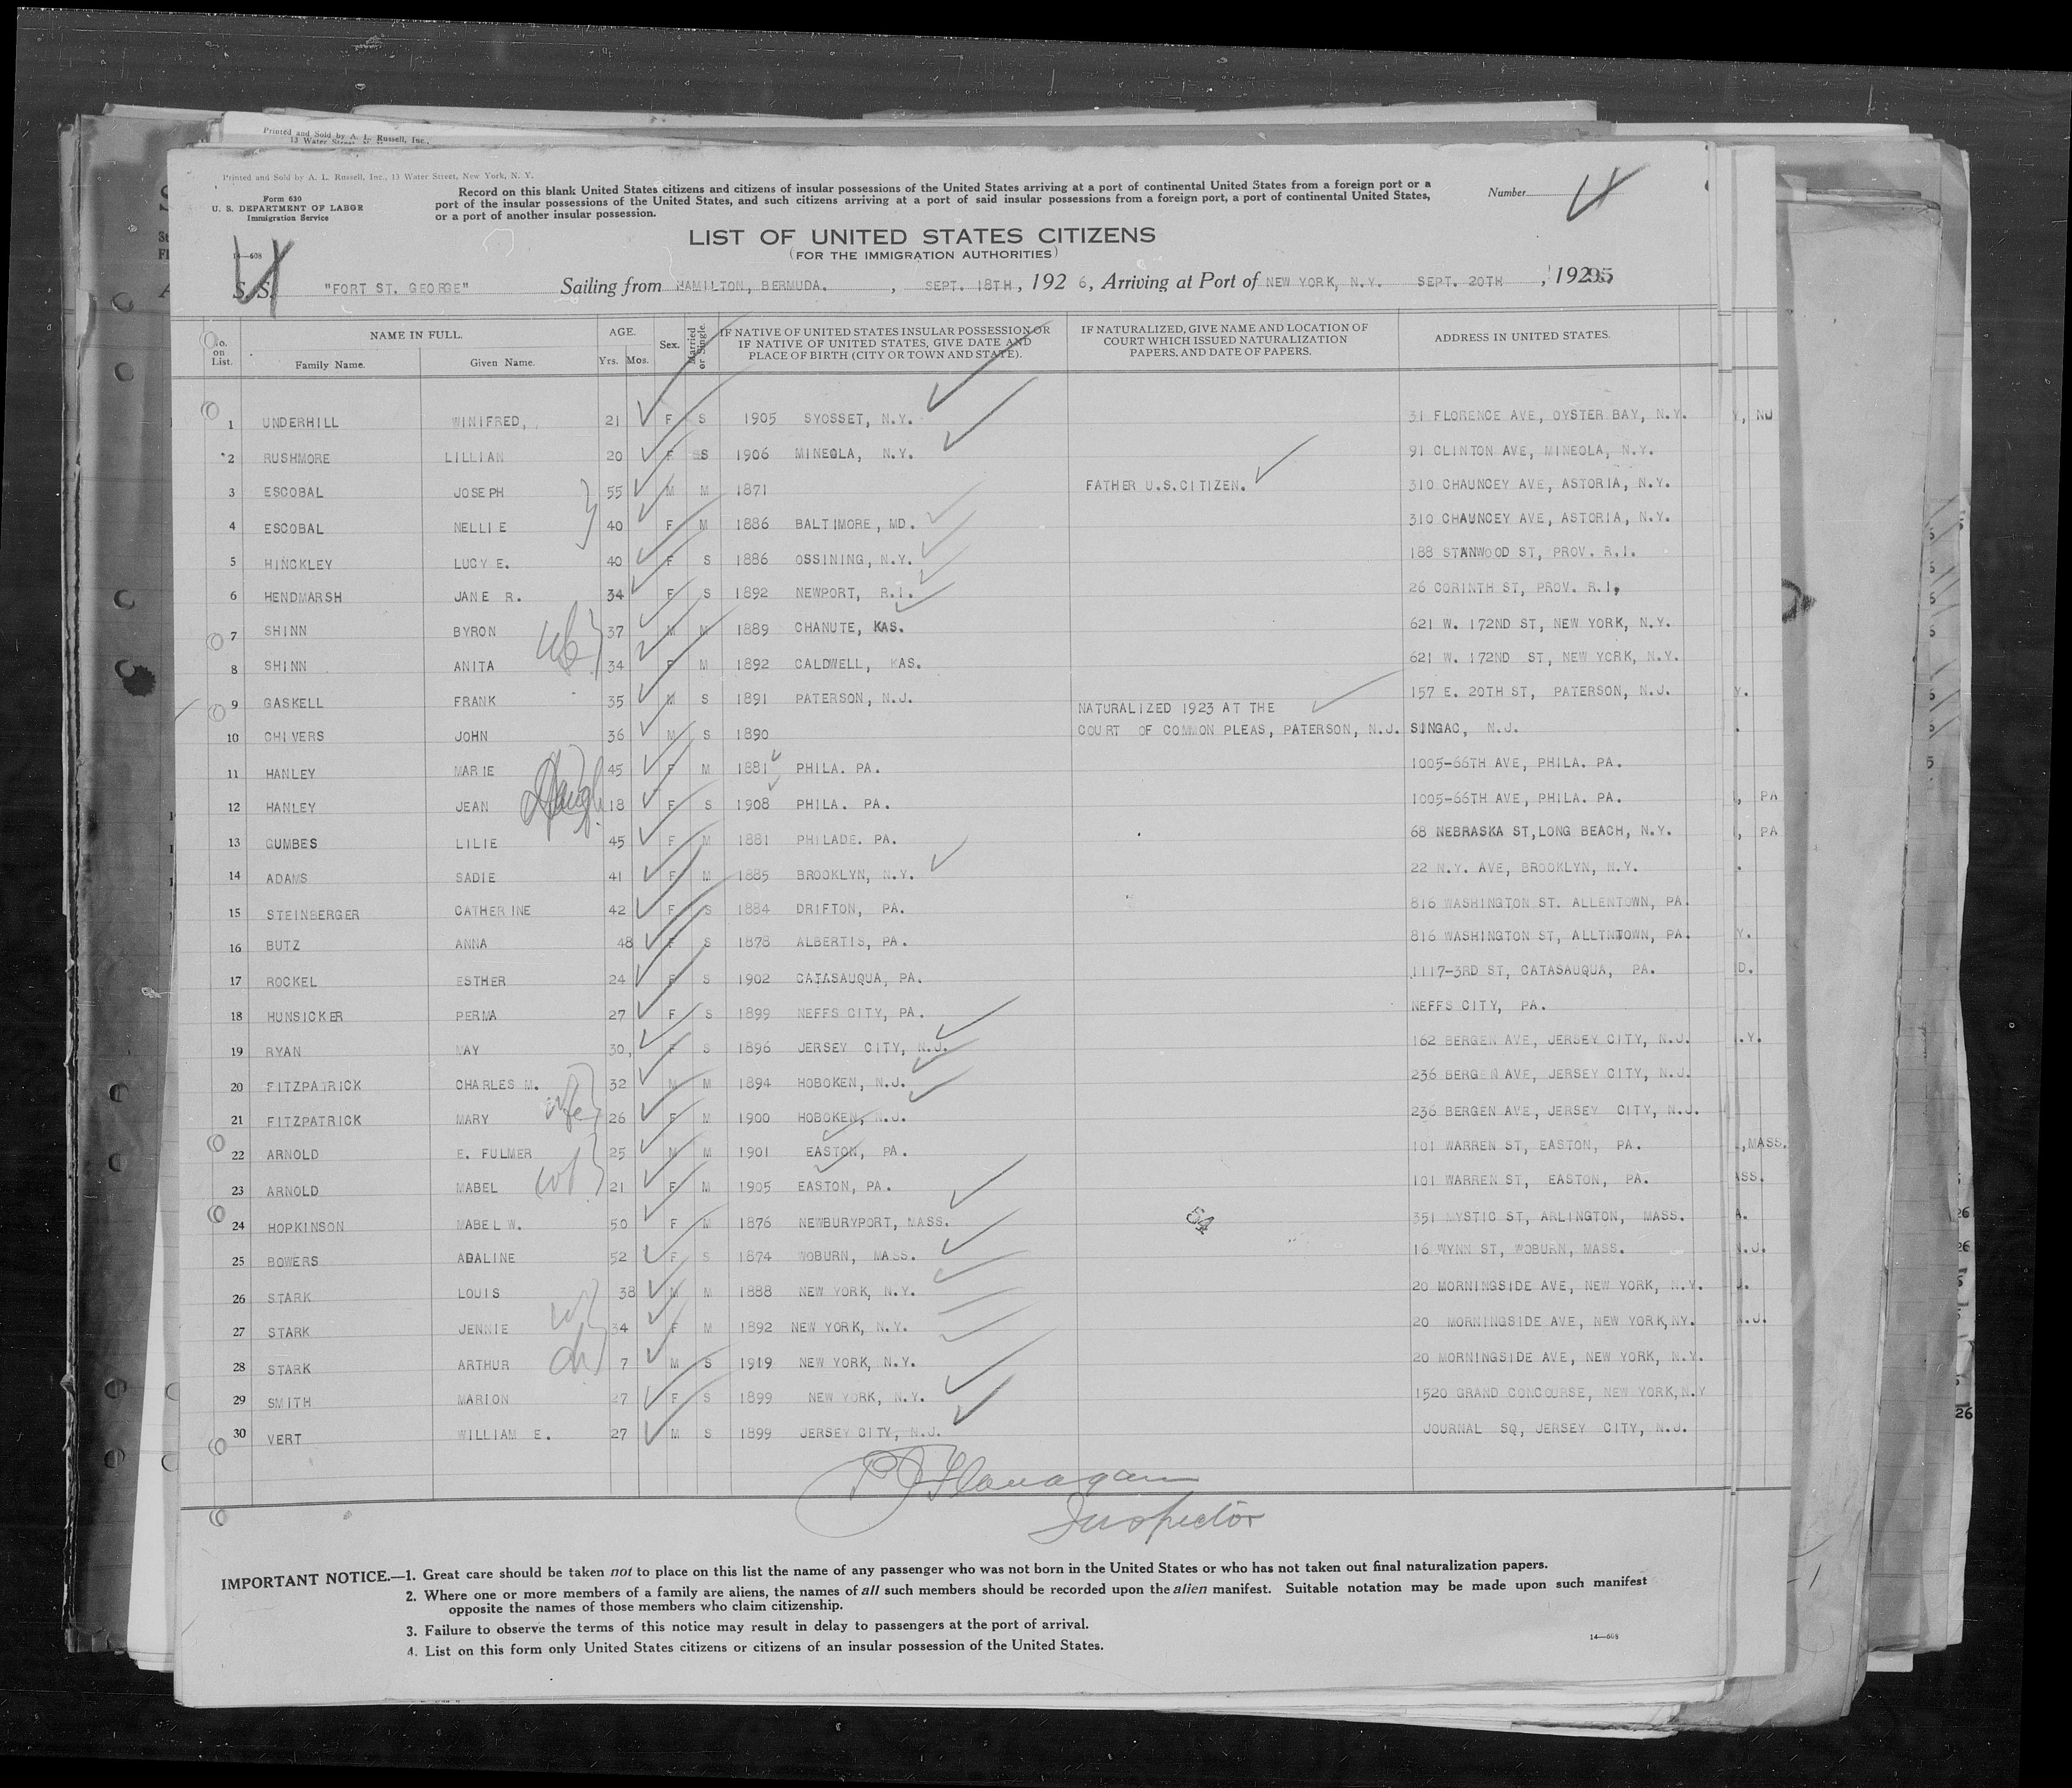 Printed and Sold by A. L. Russell, Inc.,
13 Water Street, N. Y.
Printed and Sold by A. L. Russell, Inc., 13 Water Street, New York, N. Y.
Form 630
U. S. DEPARTMENT OF LABOR
Immigration Service
Record on this blank United States citizens and citizens of insular possessions of the United States arriving at a port of continental United States from a foreign port or a
port of the insular possessions of the United States, and such citizens arriving at a port of said insular possessions from a foreign port, a port of continental United States,
or a port of another insular possession.
Number
LIST OF UNITED STATES CITIZENS
(FOR THE IMMIGRATION AUTHORITIES)
14—608
S. S. "FORT ST. GEORGE" Sailing from HAMILTON, BERMUDA. , SEPT. 18TH, 192 6, Arriving at Port of NEW YORK, N.Y. SEPT. 20TH , 192
No. on List. NAME IN FULL. Family Name. Given Name. AGE. Yrs. Mos. Sex. Married or Single. IF NATIVE OF UNITED STATES INSULAR POSSESSION OR IF NATIVE OF UNITED STATES, GIVE DATE AND PLACE OF BIRTH (CITY OR TOWN AND STATE). IF NATURALIZED, GIVE NAME AND LOCATION OF COURT WHICH ISSUED NATURALIZATION PAPERS, AND DATE OF PAPERS. ADDRESS IN UNITED STATES.
1 UNDERHILL WINIFRED, 21 F S 1905 SYOSSET, N.Y. 31 FLORENCE AVE, OYSTER BAY, N.Y.
2 RUSHMORE LILLIAN 20 F S 1906 MINEOLA, N.Y. 91 CLINTON AVE, MINEOLA, N.Y.
3 ESCOBAL JOSEPH 55 M M 1871 FATHER U.S.CITIZEN. 310 CHAUNCEY AVE, ASTORIA, N.Y.
4 ESCOBAL NELLIE 40 F M 1886 BALTIMORE, MD. 310 CHAUNCEY AVE, ASTORIA, N.Y.
5 HINCKLEY LUCY E. 40 F S 1886 OSSINING, N.Y. 188 STANWOOD ST, PROV. R.I.
6 HENDMARSH JANE R. 34 F S 1892 NEWPORT, R.I. 26 CORINTH ST, PROV. R.I,
7 SHINN BYRON 37 M M 1889 CHANUTE, KAS. 621 W. 172ND ST, NEW YORK, N.Y.
8 SHINN ANITA wife 34 F M 1892 CALDWELL, KAS. 621 W. 172ND ST, NEW YORK, N.Y.
9 GASKELL FRANK 35 M S 1891 PATERSON, N.J. 157 E. 20TH ST, PATERSON, N.J.
NATURALIZED 1923 AT THE
10 CHIVERS JOHN 36 M S 1890 COURT OF COMMON PLEAS, PATERSON, N.J. SINGAC, N.J.
11 HANLEY MARIE 45 F M 1881 PHILA. PA. 1005-66TH AVE, PHILA. PA.
12 HANLEY JEAN Daugh 18 F S 1908 PHILA. PA. 1005-66TH AVE, PHILA. PA.
13 GUMBES LILIE 45 F M 1881 PHILADE. PA. 68 NEBRASKA ST,LONG BEACH, N.Y.
14 ADAMS SADIE 41 F M 1885 BROOKLYN, N.Y. 22 N.Y. AVE, BROOKLYN, N.Y.
15 STEINBERGER CATHERINE 42 F S 1884 DRIFTON, PA. 816 WASHINGTON ST. ALLENTOWN, PA.
16 BUTZ ANNA 48 F S 1878 ALBERTIS, PA. 816 WASHINGTON ST, ALLTNTOWN, PA.
17 ROCKEL ESTHER 24 F S 1902 CATASAUQUA, PA. 1117-3RD ST, CATASAUQUA, PA.
18 HUNSICKER PERMA 27 F S 1899 NEFFS CITY, PA. NEFFS CITY, PA.
19 RYAN MAY 30, F S 1896 JERSEY CITY, N.J. 162 BERGEN AVE, JERSEY CITY, N.J.
20 FITZPATRICK CHARLES M. 32 M M 1894 HOBOKEN, N.J. 236 BERGEN AVE, JERSEY CITY, N.J.
21 FITZPATRICK MARY wife 26 F M 1900 HOBOKEN, N.J. 236 BERGEN AVE, JERSEY CITY, N.J.
22 ARNOLD E. FULMER 25 M M 1901 EASTON, PA. 101 WARREN ST, EASTON, PA.
23 ARNOLD MABEL wf 21 F M 1905 EASTON, PA. 101 WARREN ST, EASTON, PA.
24 HOPKINSON MABEL W. 50 F M 1876 NEWBURYPORT, MASS. 54 351 MYSTIC ST, ARLINGTON, MASS.
25 BOWERS ADALINE 52 F S 1874 WOBURN, MASS. 16 WYNN ST, WOBURN, MASS.
26 STARK LOUIS 38 M M 1888 NEW YORK, N.Y. 20 MORNINGSIDE AVE, NEW YORK, N.Y.
27 STARK JENNIE wf 34 F M 1892 NEW YORK, N.Y. 20 MORNINGSIDE AVE, NEW YORK,NY.
28 STARK ARTHUR ch 7 M S 1919 NEW YORK, N.Y. 20 MORNINGSIDE AVE, NEW YORK, N.Y.
29 SMITH MARION 27 F S 1899 NEW YORK, N.Y. 1520 GRAND CONCOURSE, NEW YORK,N.Y
30 VERT WILLIAM E. 27 M S 1899 JERSEY CITY, N.J. JOURNAL SQ, JERSEY CITY, N.J.
P J Flanagan
Inspector
IMPORTANT NOTICE.—1. Great care should be taken not to place on this list the name of any passenger who was not born in the United States or who has not taken out final naturalization papers.
2. Where one or more members of a family are aliens, the names of all such members should be recorded upon the alien manifest. Suitable notation may be made upon such manifest
opposite the names of those members who claim citizenship.
3. Failure to observe the terms of this notice may result in delay to passengers at the port of arrival.
4. List on this form only United States citizens or citizens of an insular possession of the United States.
14—608